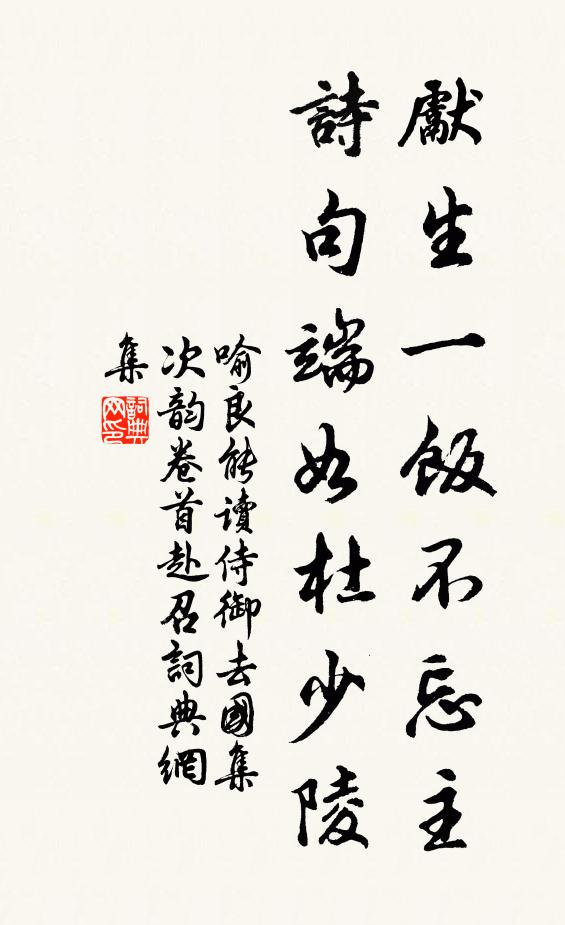 獻生一飯不忘主
詩句端如杜少陵
喻良能讀侍御去國集
次韵卷首赴召詞典網
集
詞典
网印